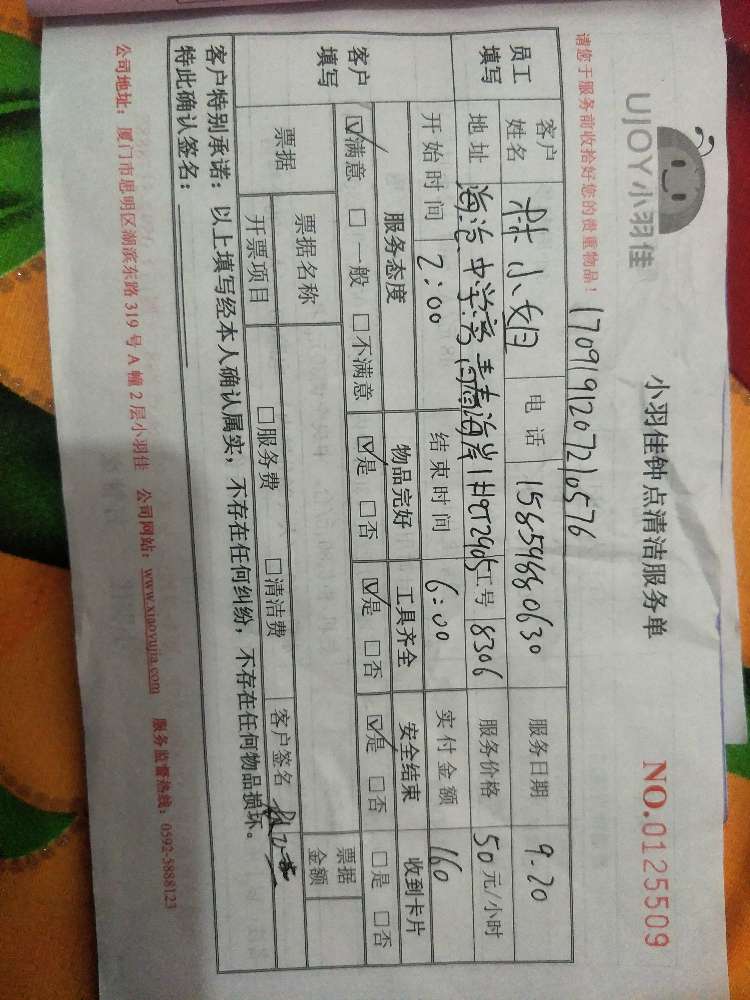 UJOY小羽佳
小羽佳钟点清洁服务单
NO.0125509
请您于服务前收拾好您的贵重物品!
1709191207210576
员工填写 客户姓名 林小姐 电话 服务日期 9.20
地址 工号 8306 服务价格 50元/小时
开始时间 2:00 结束时间 6:00 实付金额 160
客户填写 服务态度 物品完好 工具齐全 安全结束 收到卡片
☑满意 □一般 □不满意 ☑是 □否 ☑是 □否 ☑是 □否 □是 □否
票据 票据名称 票据金额
开票项目 □服务费 □清洁费 客户签名
客户特别承诺:以上填写经本人确认属实,不存在任何纠纷,不存在任何物品损坏。
特此确认签名:
公司地址:厦门市思明区湖滨东路319号A幢2层小羽佳 公司网站:www.xiaoyujia.com 服务监督热线:0592-5888123